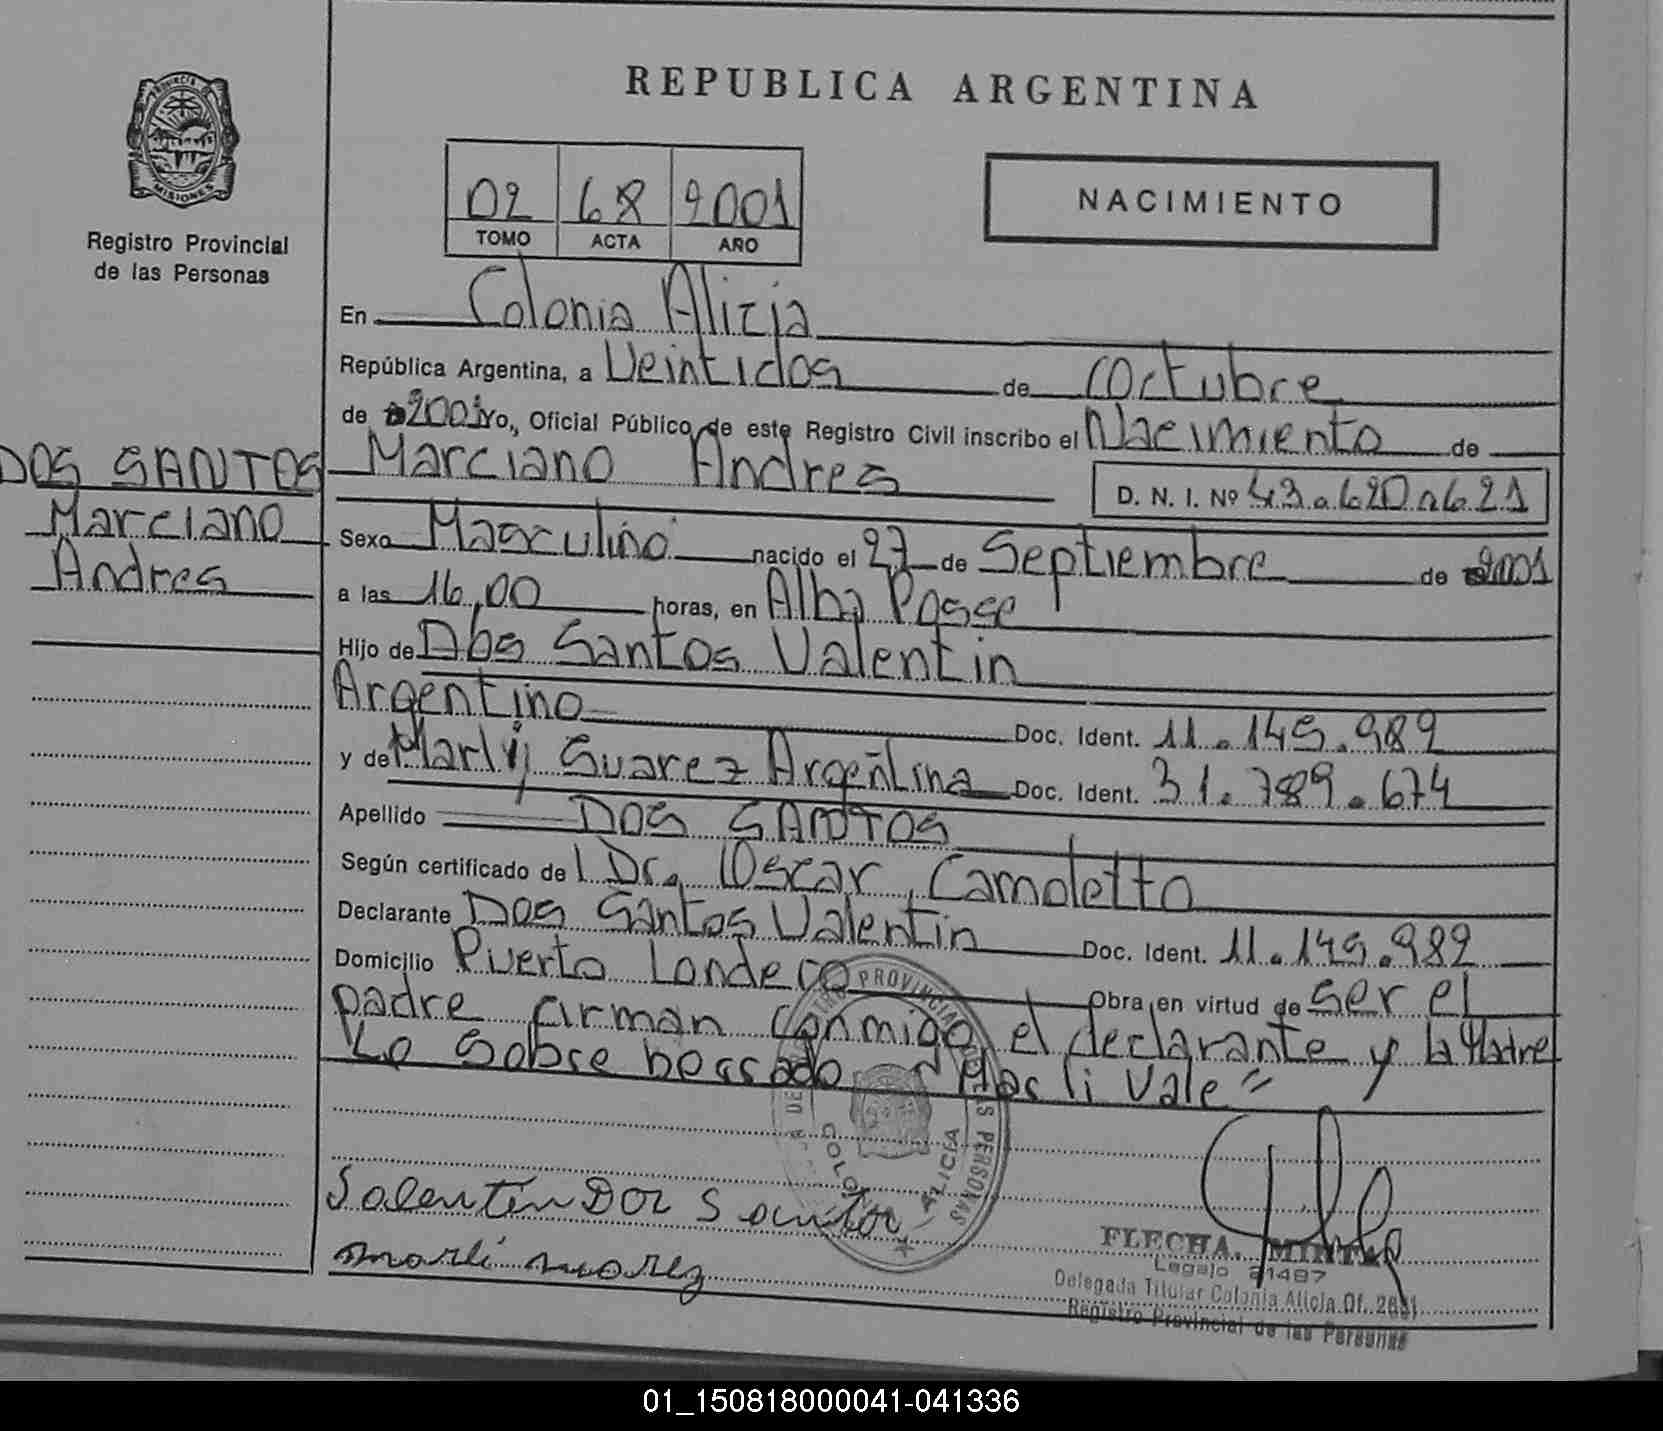 PROVINCIA DE
MISIONES
Registro Provincial
de las Personas
REPUBLICA ARGENTINA
02 68 2001
TOMO ACTA AÑO
NACIMIENTO
En Colonia Alicia
República Argentina, a Veintidos de Octubre
de 2001 Yo, Oficial Público de este Registro Civil inscribo el Nacimiento de
DOS SANTOS
Marciano
Andres
Marciano Andres
D. N. I. Nº 43.620.621
Sexo Masculino nacido el 27 de Septiembre de 2001
a las 16,00 horas, en Alba Posse
Hijo de Dos Santos Valentin
Argentino Doc. Ident. 11.149.982
y de Marli Suarez Argentina Doc. Ident. 31.789.674
Apellido DOS SANTOS
Según certificado de Dr. Oscar Camoletto
Declarante Dos Santos Valentin Doc. Ident. 11.149.982
Domicilio Puerto Londero
Obra en virtud de ser el
padre firman conmigo el declarante y la Madre
Lo Sobre borrado "Marli Vale"
PROVINCIAL DE LAS PERSONAS
COLONIA ALICIA
Valentin Dos Santos
marli suarez
FLECHA, MIRTA
Legajo 21497
Delegada Titular Colonia Alicia Of. 2681
Registro Provincial de las Personas
01_150818000041-041336